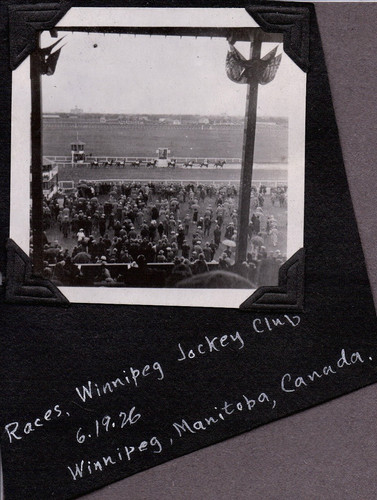 Races. Winnipeg Jockey Club
6.19.26
Winnipeg, Manitoba, Canada.